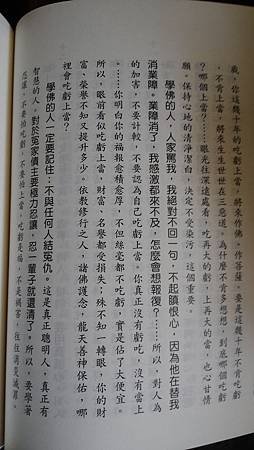 哉，你這幾十年的吃虧上當，將來作佛、作菩薩。要是這幾十年不肯吃虧
，不肯上當，將來生生世世在三惡道，為什麼不肯多想想，到底哪個吃虧
？哪個上當？……眼光往深遠處看，吃再大的虧，上再大的當，也心甘情
願。保持心地的清淨潔白，決定不受染污，這個重要。
學佛的人，人家罵我，我絕對不回一句，不起瞋恨心，因為他在替我
消業障。業障消了，我感激都來不及，怎麼會想報復？……所以，對人為
的加害，不要計較，不要認為自己吃虧上當。你真正沒有虧吃，沒有當上
。……你明白你的福報愈積愈厚，不但絲毫都不吃虧，實是佔了大便宜。
所以，眼前看似吃虧上當，財富、名譽都受損失，殊不知一轉眼，你的財
富、榮譽不知又提升多少。依教修行之人，諸佛護念，龍天善神保佑，哪
裡會吃虧上當？
學佛的人一定要記住：不與任何人結冤仇。這是真正聰明人，真正有
智慧的人。對於冤家債主要極力忍讓，忍一輩子就還清了。所以，要學著
忍讓，不要怕吃虧，不要怕上當，吃虧是福，不是禍害，往往消災滅罪。